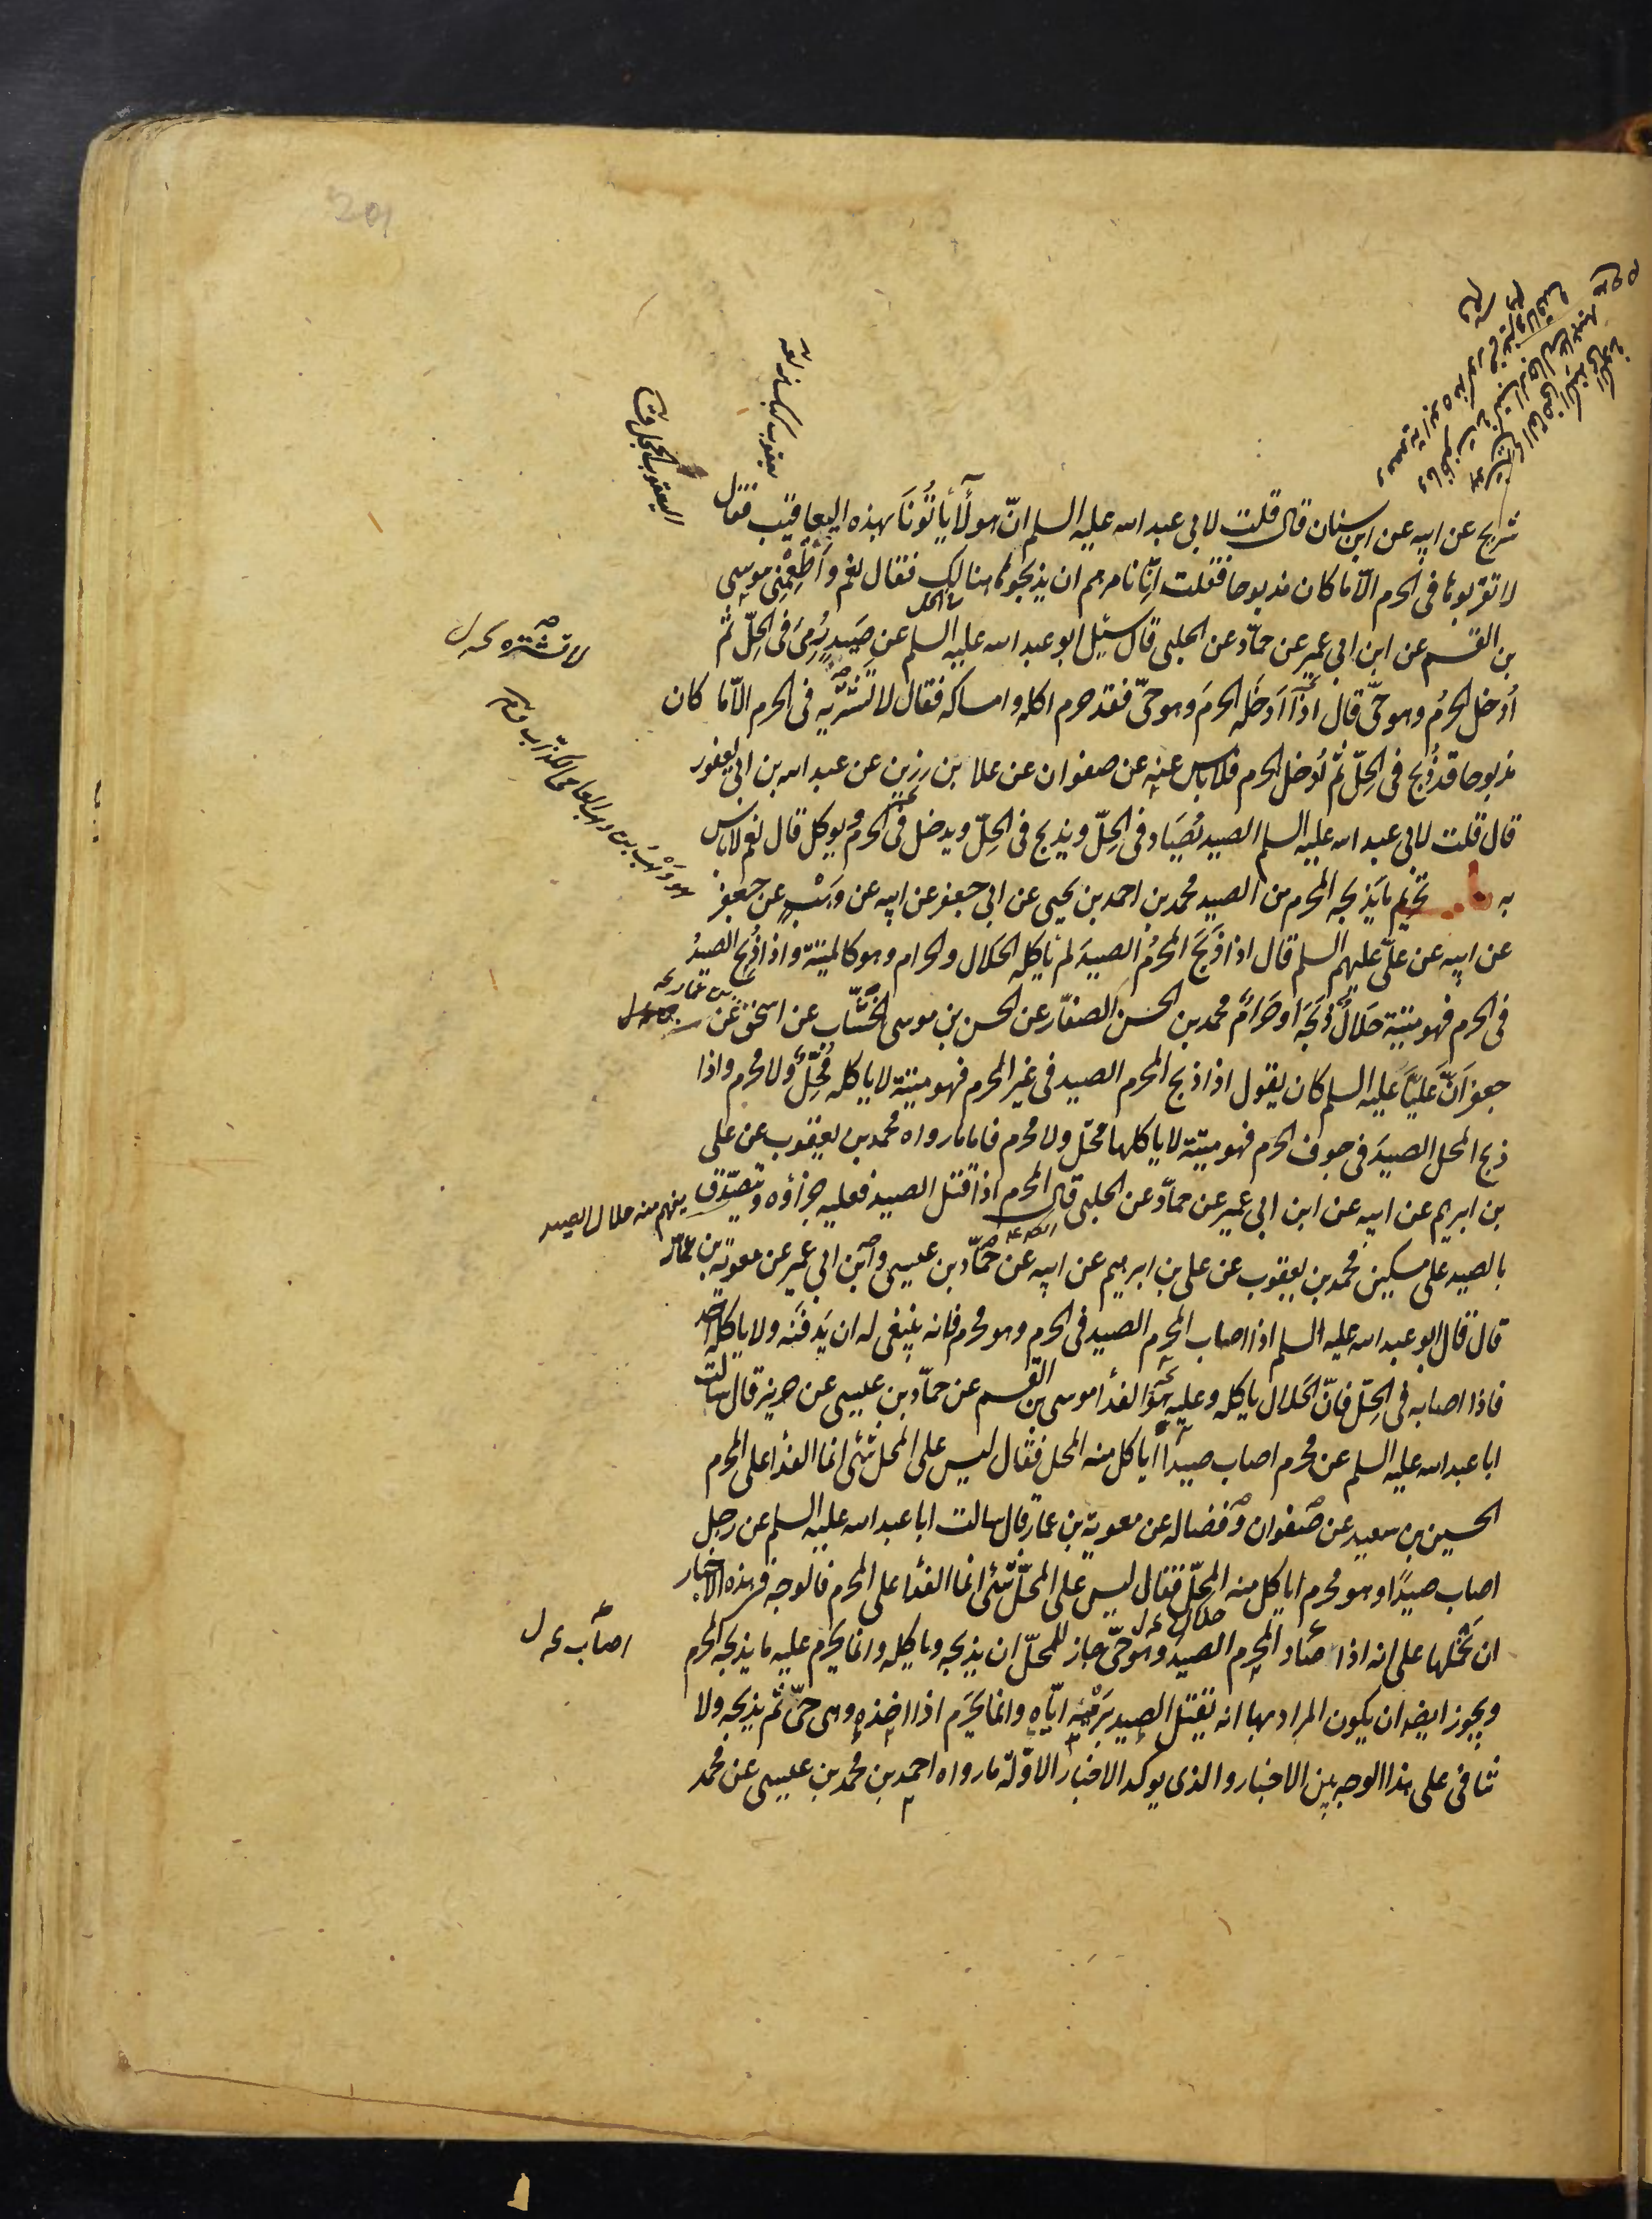 شريح عن ابيه عن ابن سنان قال قلت لابي عبد الله عليه السلم انّ هولآء يأتُونَا بهذه اليعاقيب فقال
لا تقربوها في الحرم الّا ما كان مذبوحا فقلت انّا نامرهم ان يذبحوها هنالك فقال نعم وأطْعِمْني موسى
بن القسم عن ابن ابي عمير عن حمّاد عن الحلبي قال سُئِل ابو عبد الله عليه السلم عن صَيدٍ رُمِيَ في الحِلّ ثم
اُدْخل الحرمَ وهو حيّ قال اذا ادخَله الحرمَ وهو حيّ فقد حرم اكله وامساكه فقال لا تشتَرِيه في الحرم الّا ما كان
مذبوحا قد ذُبح في الحِلّ ثم اُدخل الحرم فلا باس عنه عن صفوان عن علا بن رزين عن عبد الله بن ابي يعفور
قال قلت لابي عبد الله عليه السلم الصيد يُصَاد في الحِلّ ويذبح في الحِلّ ويدخل في الحرم ويوكل قال نعم لا باس
به باب تحريم ما يَذبحه المحرم من الصيد محمد بن احمد بن يحيى عن ابي جعفر عن ابيه عن وَهْبٍ عن جعفر
عن ابيه عن عليّ عليهم السلم قال اذا ذَبَحَ المحرمُ الصيدَ لم ياكله الحَلال والحرام وهو كالميتة واذا ذُبِحَ الصيدُ
في الحرم فهو ميتة حَلالٌ ذَبَحَه اَو حَرامٌ محمد بن الحسن الصفّار عن الحسن بن موسى الخشّاب عن اسحق عن
جعفر اَنّ عَليّاً عليه السلم كان يقول اذا ذبح المحرم الصيد في غير الحرم فهو ميتة لا ياكله مُحِلٌّ ولا محرم واذا
ذبح المحل الصيدَ في جوف الحرم فهو ميتة لا ياكلها محلّ ولا محرم فاما ما رواه محمد بن يعقوب عن علي
بن ابرهيم عن ابيه عن ابن ابي عمير عن حمّاد عن الحلبي قال المحرم اذا قتل الصيد فعليه جزاؤه ويتصدّق
بالصيد على مسكين محمد بن يعقوب عن علي بن ابرهيم عن ابيه عن حمّاد بن عيسى وابن ابي عمير عن معوية بن عمار
قال قال ابو عبد الله عليه السلم اذا اصاب المحرم الصيد في الحرم وهو محرم فانه ينبغي له ان يَدفنَه ولا ياكله احد
فاذا اصابه في الحِلّ فانّ الحَلال ياكله وعليه هو الفدأ موسى بن القسم عن حمّاد بن عيسى عن حريز قال سالت
ابا عبد الله عليه السلم عن محرم اصاب صيداً اياكل منه المحل فقال ليس على المحل شئ انما الفدأ على المحرم
الحسين بن سعيد عن صفوان وفضاله عن معوية بن عمار قال سالت ابا عبد الله عليه السلم عن رجل
اصاب صيدًا وهو محرم اياكل منه المحِلّ فقال ليس على المحلّ شئ انما الفدأ على المحرم فالوجه في هذه الاخبار
ان نحملها على انه اذا صاد المحرم الصيد وهو حيّ جاز للمحلّ ان يذبحه وياكله وانما يحرم عليه ما يذبحه المحرم
ويجوز ايضا ان يكون المراد بها انه يقتل الصيد بَرمْيِه ايّاه وانما يَحْرَم اذا اخذه وهي حيّ ثم يذبحه ولا
تنافي على هذا الوجه بين الاخبار والذي يوكد الاخبار الاوّلة ما رواه احمد بن محمد بن عيسى عن محمد
لا تشتره
يفهم منه حلال الصيد
اصاب
حلال
201